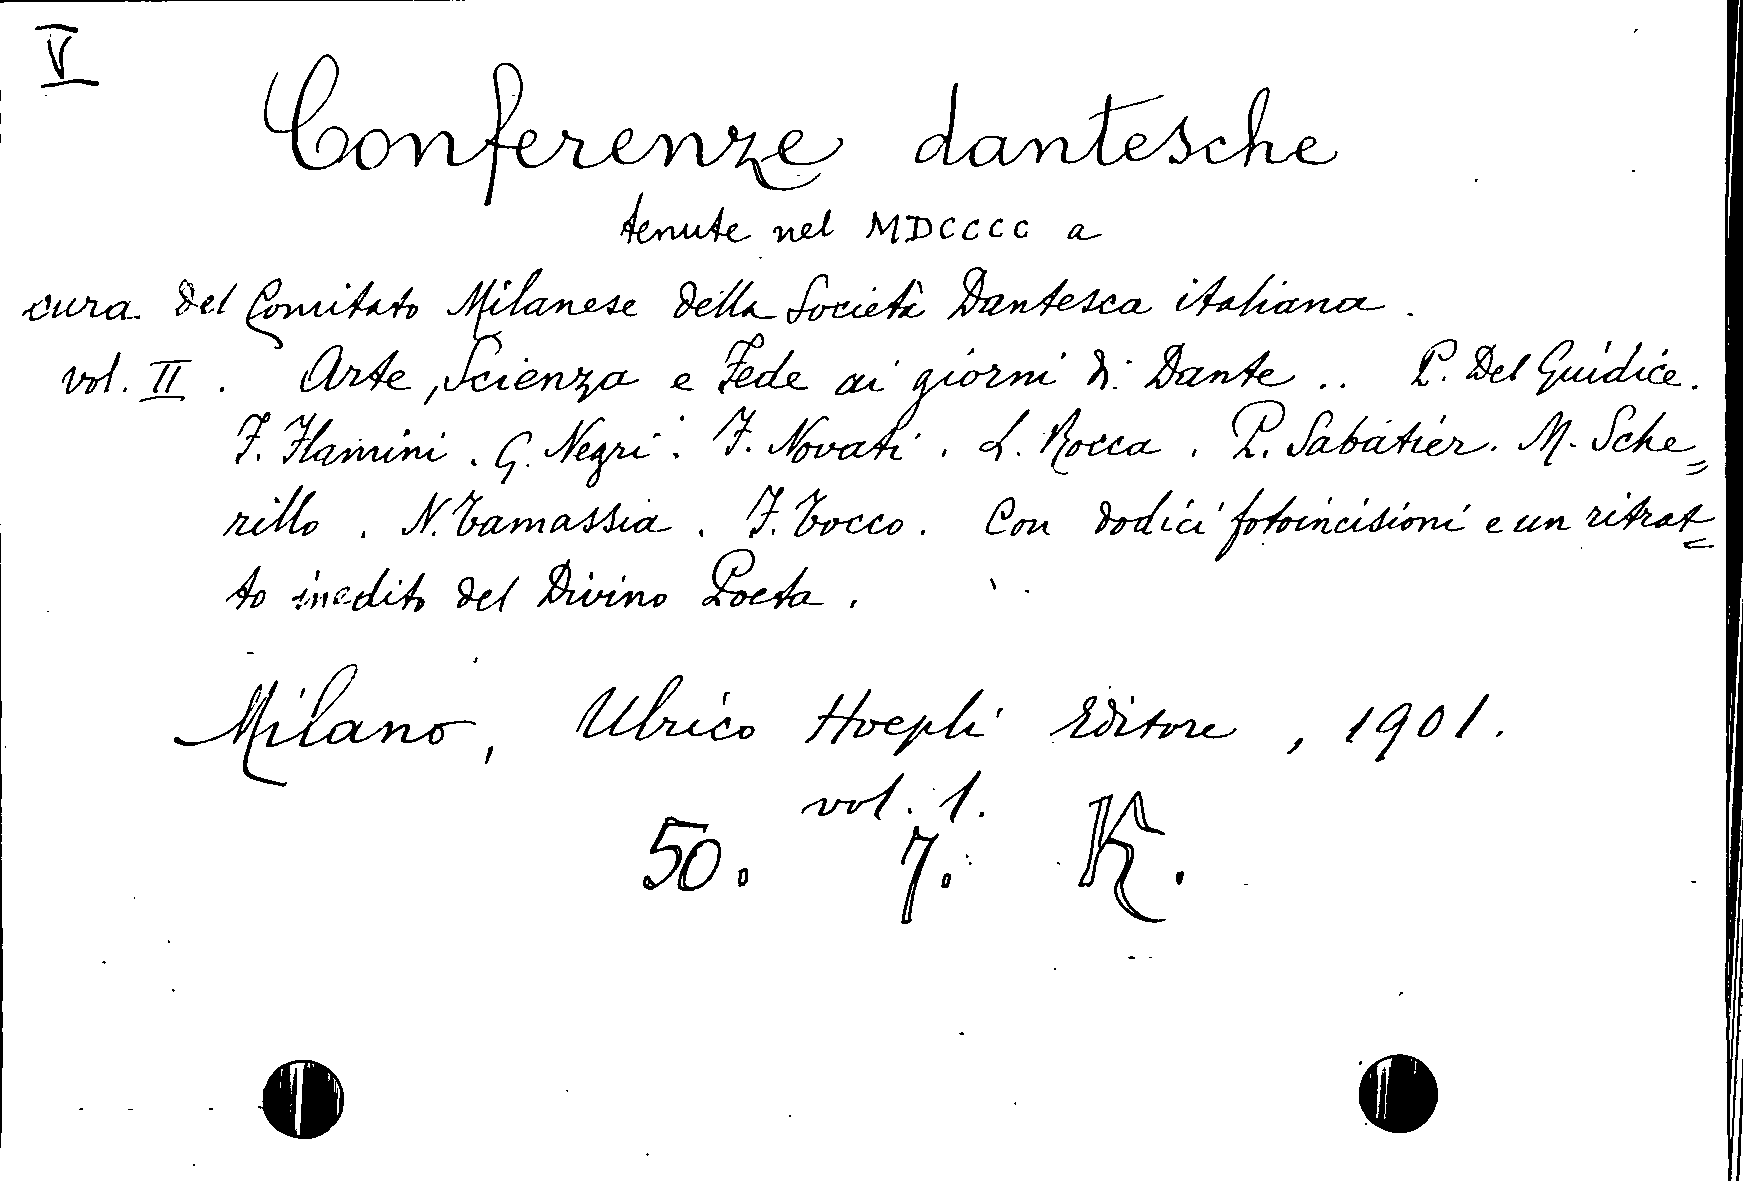 V
Conferenze dantesche
tenute nel MDCCCC a
cura del Comitato Milanese della Società Dantesca italiana.
vol. II. Arte, Scienza e Fede ai giorni di Dante .. P. Del Guidice.
F. Flamini. G. Negri. F. Novati. L. Rocca. P. Sabatier. M. Sche=
rillo. N. Tamassia. F. Tocco. Con dodici fotoincisioni e un ritrat=
to inedito del Divino Poeta.
Milano, Ulrico Hoepli Editore, 1901.
vol. 1.
50. 7. K.